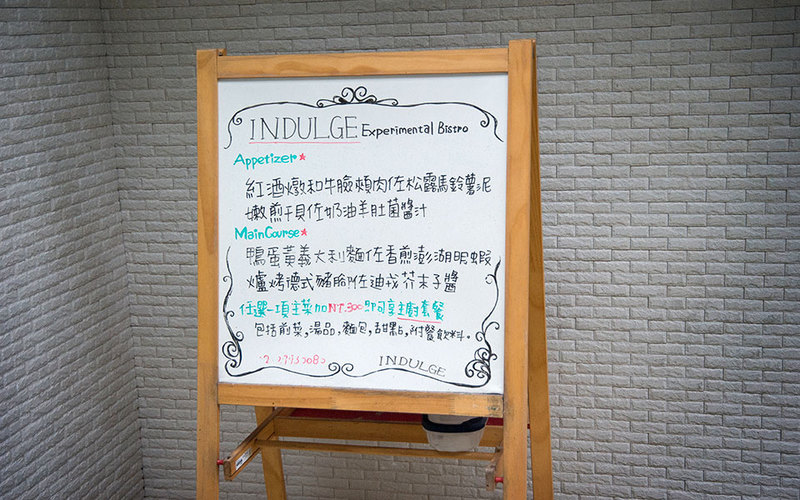 INDULGE Experimental Bistro
Appetizer*
紅酒燉和牛臉頰肉佐松露馬鈴薯泥
嫩煎干貝佐奶油羊肚菌醬汁
Main Course*
鴨蛋黃義大利麵佐香煎澎湖明蝦
爐烤德式豬腳佐迪戎芥末子醬
任選一項主菜加NT.300即可享主廚套餐
包括前菜,湯品,麵包,甜點,附餐飲料。
INDULGE